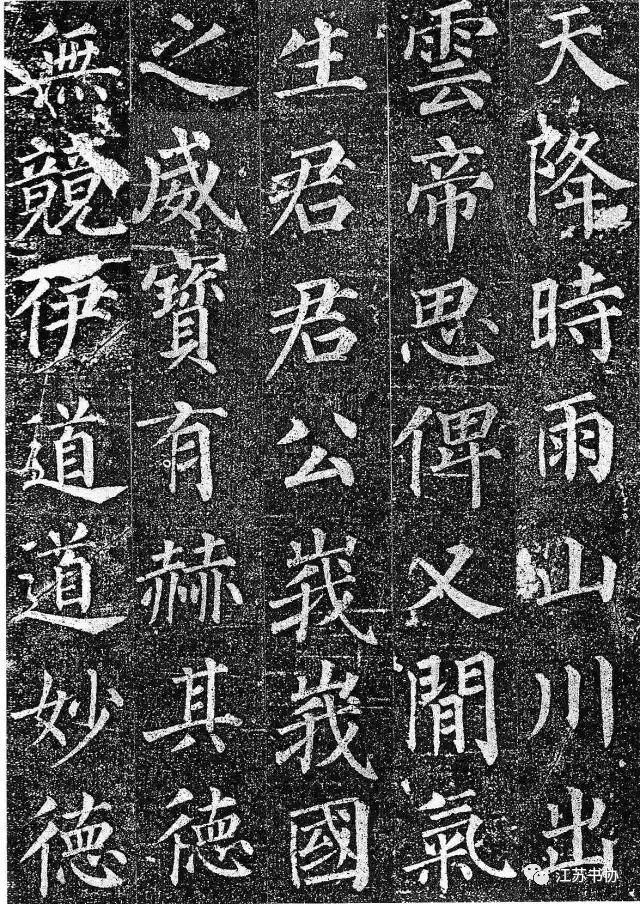 天降時雨山川出
雲帝思俾乂閒氣
生君君公峩峩國
之威寶有赫其德
無競伊道道妙德
江苏书协